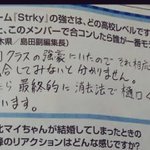 ーム「Strky」の強さは、どの高校レベルです
、このメンバーで合コンしたら誰が一番モ
木県／島田副編集長）
クラスの強豪に
してみないと分かりません。
たら最終的に消去法で樋口く
います。
北マイちゃんが結婚してしまったときの
のリアクションはどんな感じですか？